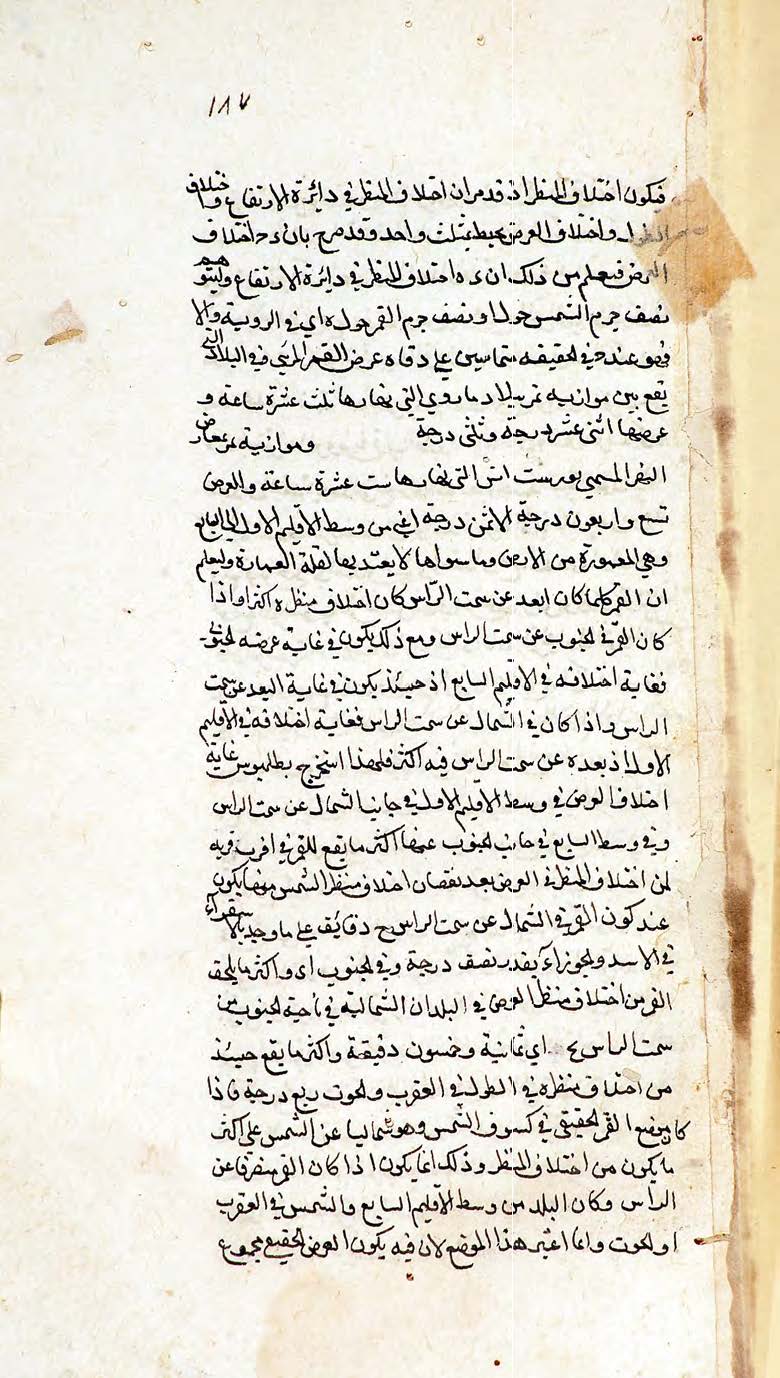 ١٨٧
فيكون اختلاف المنظر اذ قد مر ان اختلاف المنظر في دائرة الارتفاع واختلاف
الطول واختلاف العرض يحيط بمثلث واحد وقد صرح بان ح اختلاف
العرض فيعلم من ذلك ان ه اختلاف المنظر في دائرة الارتفاع وليتوهم
نصف جرم الشمس حول ا ونصف جرم القمر حول ه اي في الروية والا
فهو عند ح في الحقيقه متماسين على د فاه عرض القمر المرئي ففي البلاد التي
يقع بين موازيه تمر ببلاد ماروي التي نهارها ثلث عشرة ساعة و
عرضها اثنى عشر درجة وثلثى درجة وموازية تمر بمعارض
النهر المسمى بورستانس التي نهارها ست عشرة ساعة والعرض
تسع واربعون درجة الا ثمن درجة اعني من وسط الاقليم الاول الى السابع
وهي المعمورة من الارض وما سواها لا يعتد بها لقلة العمارة وليعلم
ان القمر كلما كان ابعد عن سمت الراس كان اختلاف منظره اكثر واذا
كان القمر في الجنوب عن سمت الراس ومع ذلك يكون في غاية عرضه الجنوبى
فغاية اختلافه في الاقليم السابع اذ حينئذ يكون في غاية البعد عن سمت
الراس واذا كان في الشمال عن سمت الراس فغاية اختلافه في الاقليم
الاول اذ بعده عن سمت الراس فيه اكثر فلهذا استخرج بطلميوس غاية
اختلاف العرض في وسط الاقليم الاول في جانب الشمال عن سمت الراس
وفي وسط السابع في جانب الجنوب عنها اكثر ما يقع للقمر في اقرب قربه
من اختلاف المنظر في العرض بعد نقصان اختلاف منظر الشمس منها يكون
عند كون القمر في الشمال عن سمت الراس ح دقايق على ما وجد بالاستقراء
في الاسد والجوزاء بقدر نصف درجة وفي الجنوب اى واكثر ما يلحق
القمر من اختلاف منظر العرض في البلدان الشمالية في ناحية الجنوب من
سمت الراس اي ثمانية وخمسون دقيقة واكثر ما يقع حينئذ
من اختلاف منظره في الطول في العقرب والحوت ربع درجة فاذا
كان موضع القمر الحقيقي في كسوف الشمس وهو شماليا عن الشمس على اكثر
ما يكون من اختلاف المنظر وذلك انما يكون اذا كان القمر منحرفا عن
الراس وكان البلد من وسط الاقليم السابع والشمس في العقرب
او الحوت وانما اعتبر هذا الموضع لان فيه يكون العرض الحقيقي مجموع